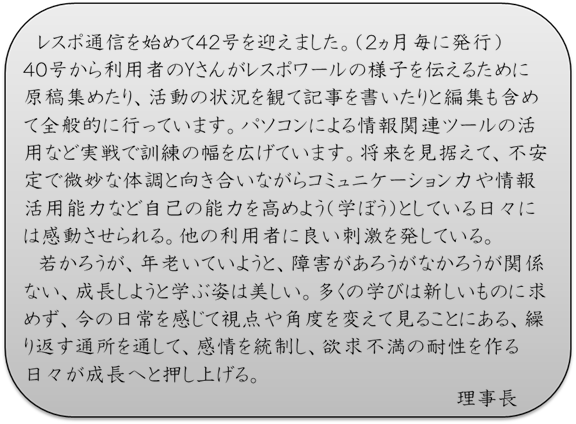 レスポ通信を始めて42号を迎えました。(2ヵ月毎に発行)
40号から利用者のYさんがレスポワールの様子を伝えるために
原稿集めたり、活動の状況を観て記事を書いたりと編集も含め
て全般的に行っています。パソコンによる情報関連ツールの活
用など実戦で訓練の幅を広げています。将来を見据えて、不安
定で微妙な体調と向き合いながらコミュニケーション力や情報
活用能力など自己の能力を高めよう(学ぼう)としている日々に
は感動させられる。他の利用者に良い刺激を発している。
若かろうが、年老いていようと、障害があろうがなかろうが関係
ない、成長しようと学ぶ姿は美しい。多くの学びは新しいものに求
めず、今の日常を感じて視点や角度を変えて見ることにある、繰
り返す通所を通して、感情を統制し、欲求不満の耐性を作る
日々が成長へと押し上げる。
理事長